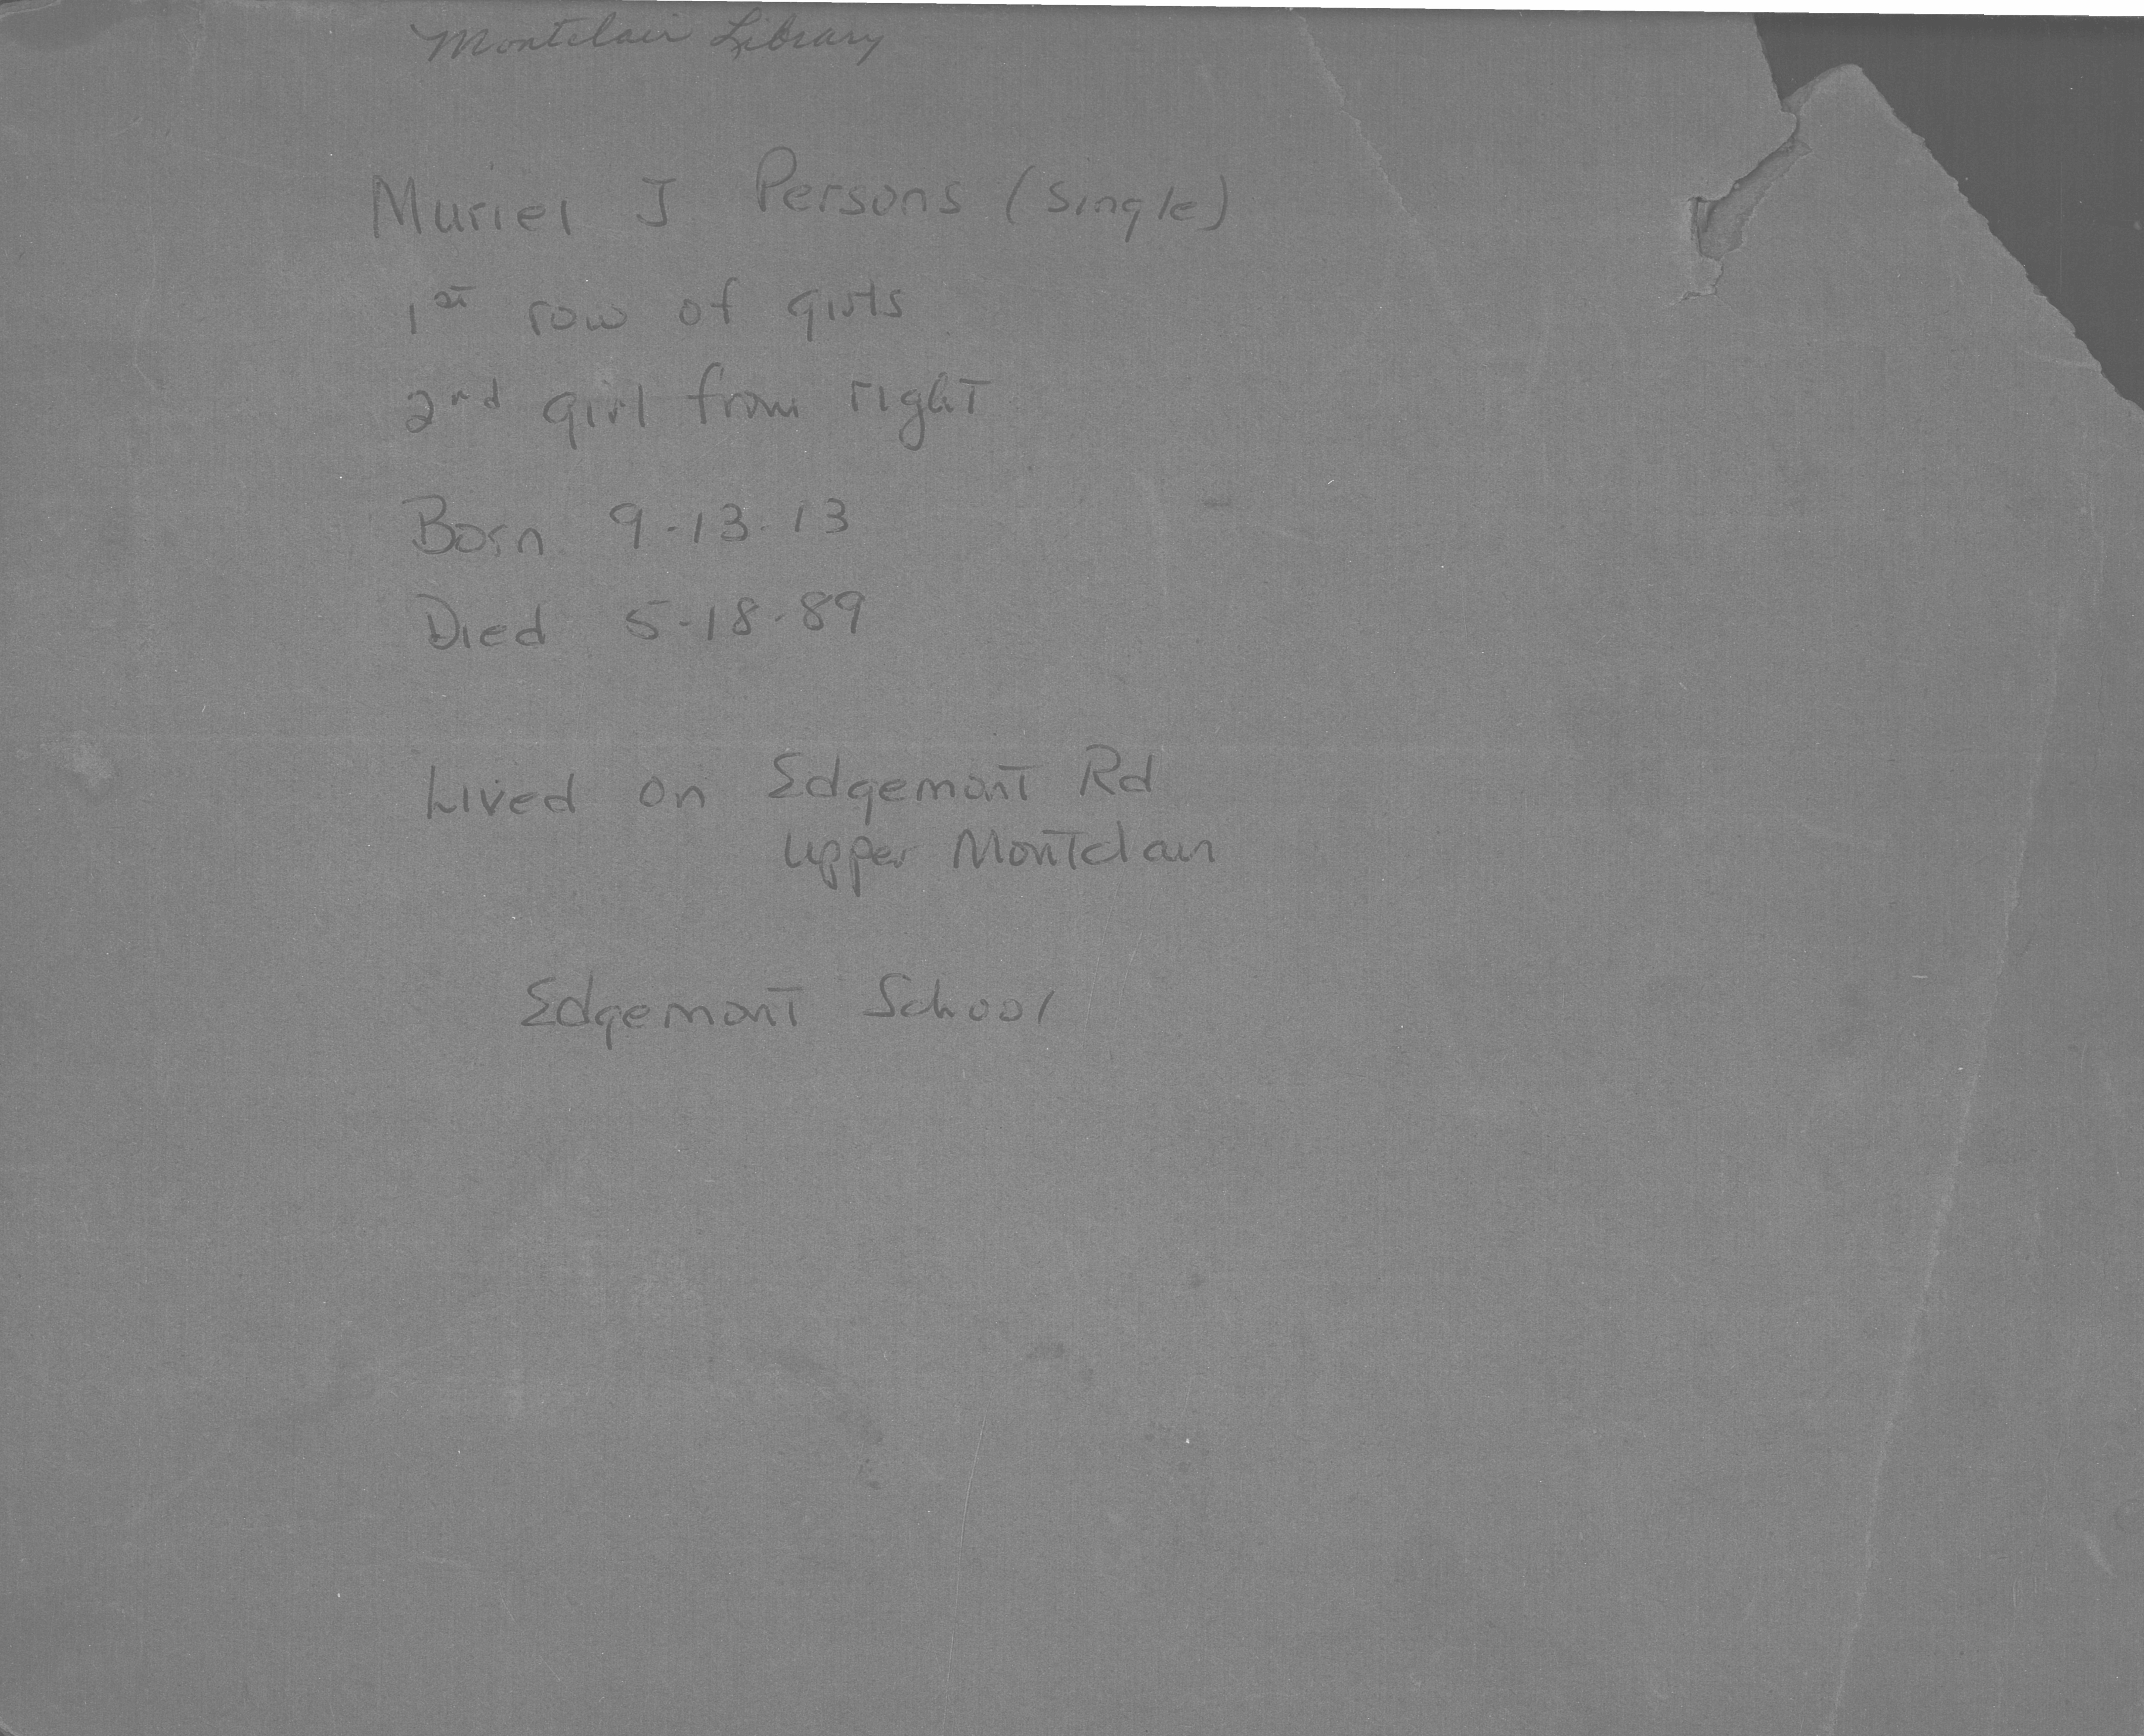 Montclair Library
Muriel J Persons (single)
1st row of girls
2nd girl from right
Born 9-13-13
Died 5-18-89
Lived on Edgemont Rd
Upper Montclair
Edgemont School